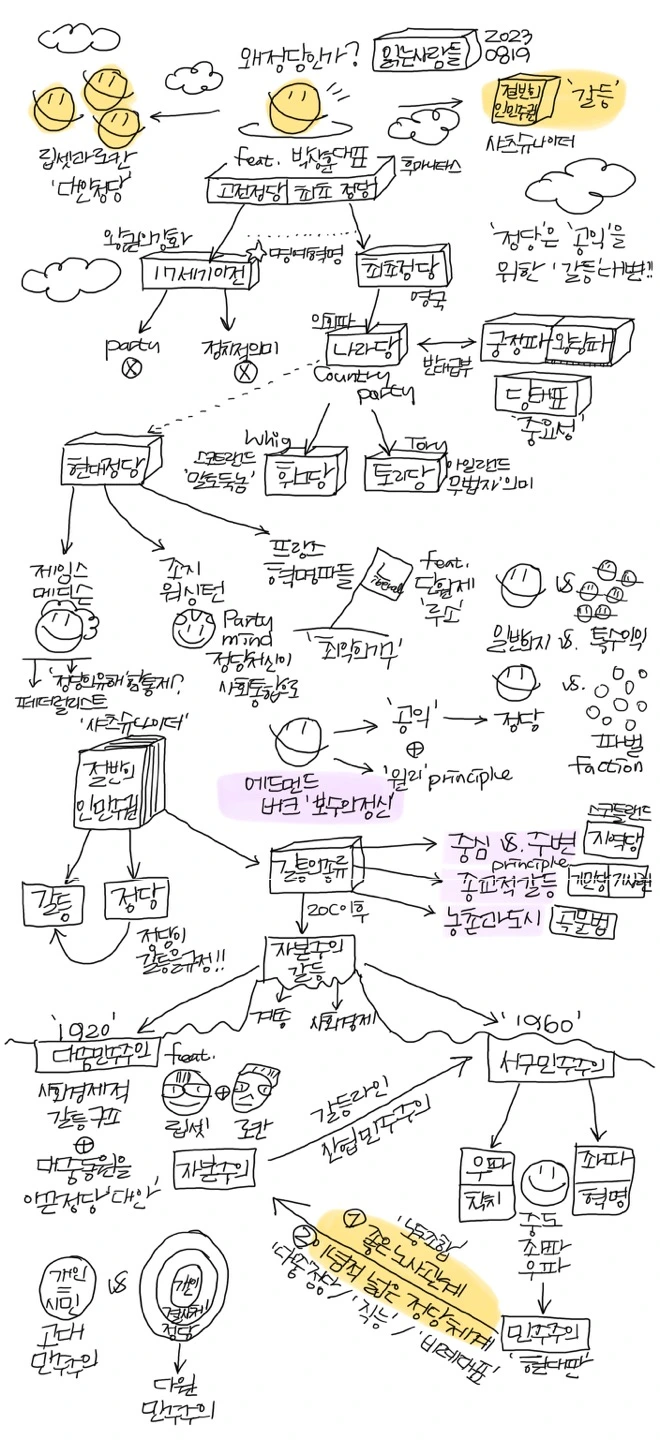 왜정당인가?
읽는사람들
2023
0819
절반의
인민주권
'갈등'
샤츠슈나이더
립셋과로칸
'대안정당'
feat. 박상훈대표
후마니타스
고전정당
최초 정당
'정당'은 '공익'을
위한 '갈등'대변!!
왕권의강화
17세기이전
명예혁명
최초정당
영국
party
정치적의미
의회파
나라당
Country
party
반대급부
궁정파
왕당파
당대표
'중요성'
현대정당
Whig
스코틀랜드
'말도둑놈'
휘그당
Tory
토리당
아일랜드
'무법자'의미
제임스
메디슨
조지
워싱턴
프랑스
혁명파들
feat.
단일제
'루소'
'최악의기구'
Party
mind
정당처신이
사회통합으로
일반의지 vs. 특수이익
vs
'정당의유해' 함통제?
페더럴리스트
'샤츠슈나이더'
'공익'
⊕
'원리' principle
정당
vs.
파벌
faction
에드먼드
버크 '보수의정신'
절반의
인민주권
갈등
정당
정당이
갈등을규정!!
갈등의종류
중심 vs. 주변
스코틀랜드
지역당
principle
종교적갈등
기민당
기사련
농촌과도시
곡물법
20C이후
자본주의
갈등
계층
사회경제
'1920'
대중민주주의
feat.
사회경제적
갈등구조
⊕
대중동원을
이끈정당 '대안'
립셋
⊕
로칸
자본주의
갈등라인
산업민주주의
'1960'
서구민주주의
우파
좌파
혁명
중도
좌파
우파
민주주의
'현대판'
① 좋은 노사관계
'노조합'
② 이념적 넓은 정당체계
'대중정당' / '직능' / '비례대표'
개인
시민
고대
민주주의
vs
개인
결사체
정당
다원
민주주의